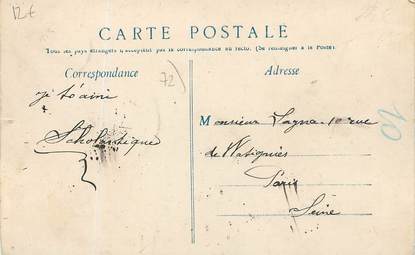 12€
CARTE POSTALE
Tous les pays étrangers n'acceptent pas la correspondance au recto. (Se renseigner à la Poste).
Correspondance
72
Adresse
je t'aime
Scholastique
Monsieur Sagne 10 rue
de Watignies
Paris
Seine
10